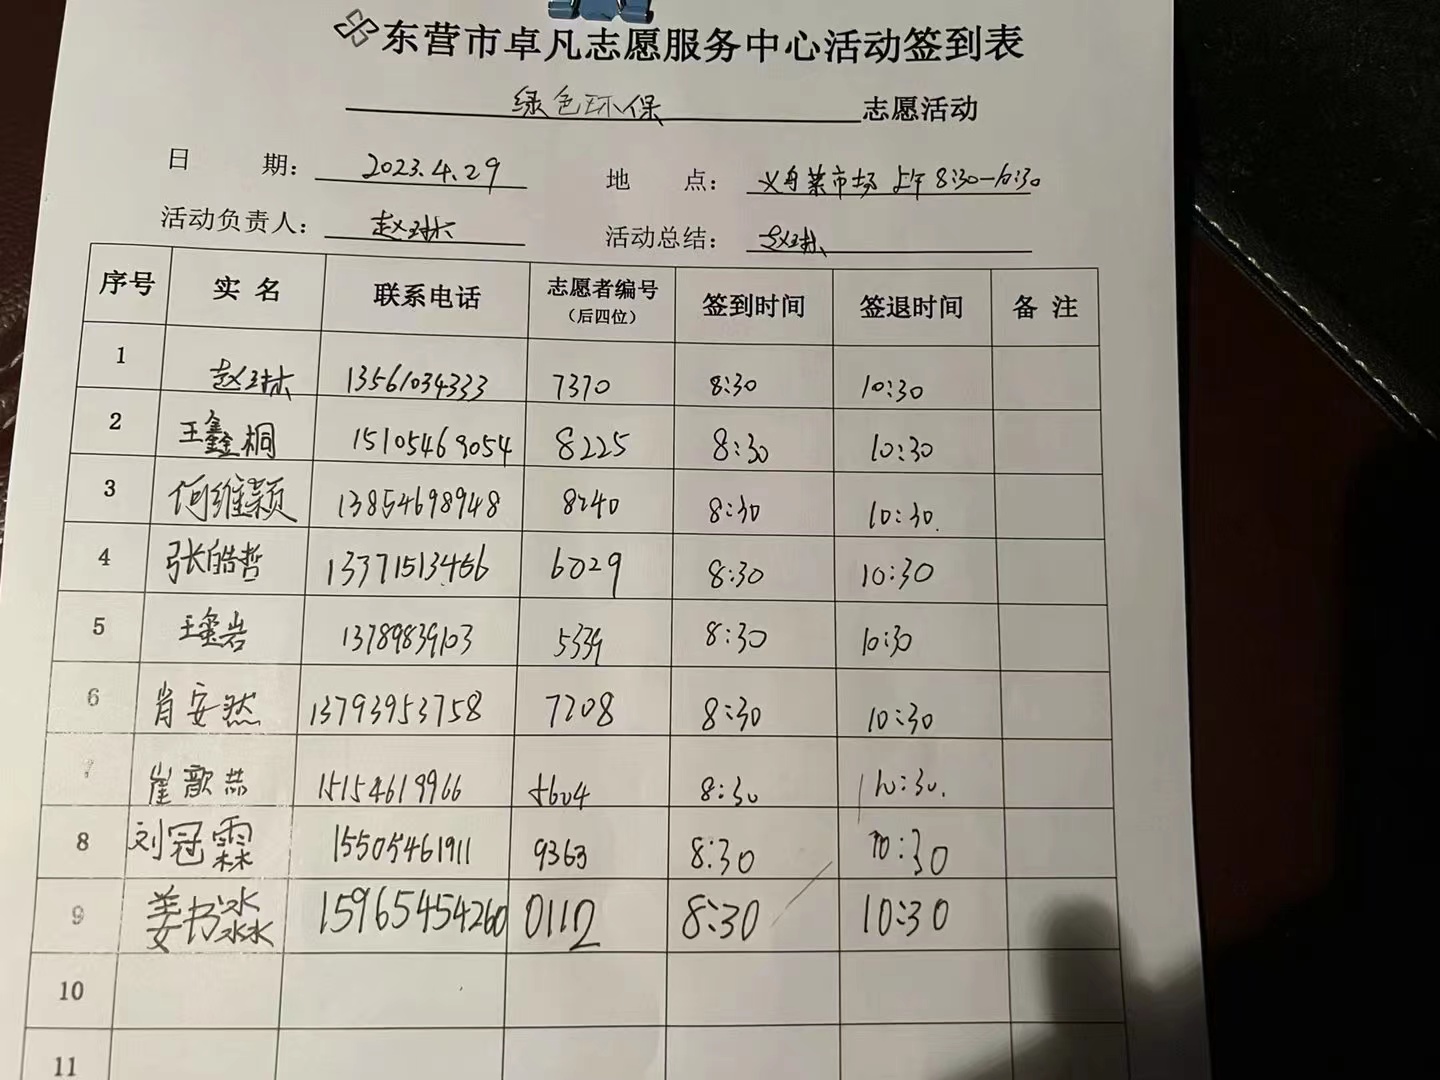 东营市卓凡志愿服务中心活动签到表
绿色环保 志愿活动
日 期： 2023.4.29 地 点： 义乌菜市场 上午 8:30-10:30
活动负责人： 赵琳 活动总结： 赵琳
序号 实 名 联系电话 志愿者编号（后四位） 签到时间 签退时间 备 注
1 赵琳 13561034333 7370 8:30 10:30
2 王鑫桐 15105469054 8225 8:30 10:30
3 何维颖 13854698948 8240 8:30 10:30
4 张皓哲 13371513466 6029 8:30 10:30
5 王玺岩 13789839103 5339 8:30 10:30
6 肖安然 13793953758 7208 8:30 10:30
7 崔歆 15154619966 5604 8:30 10:30
8 刘冠霖 15505461911 9363 8:30 10:30
9 姜书 15965454260 0112 8:30 10:30
10
11